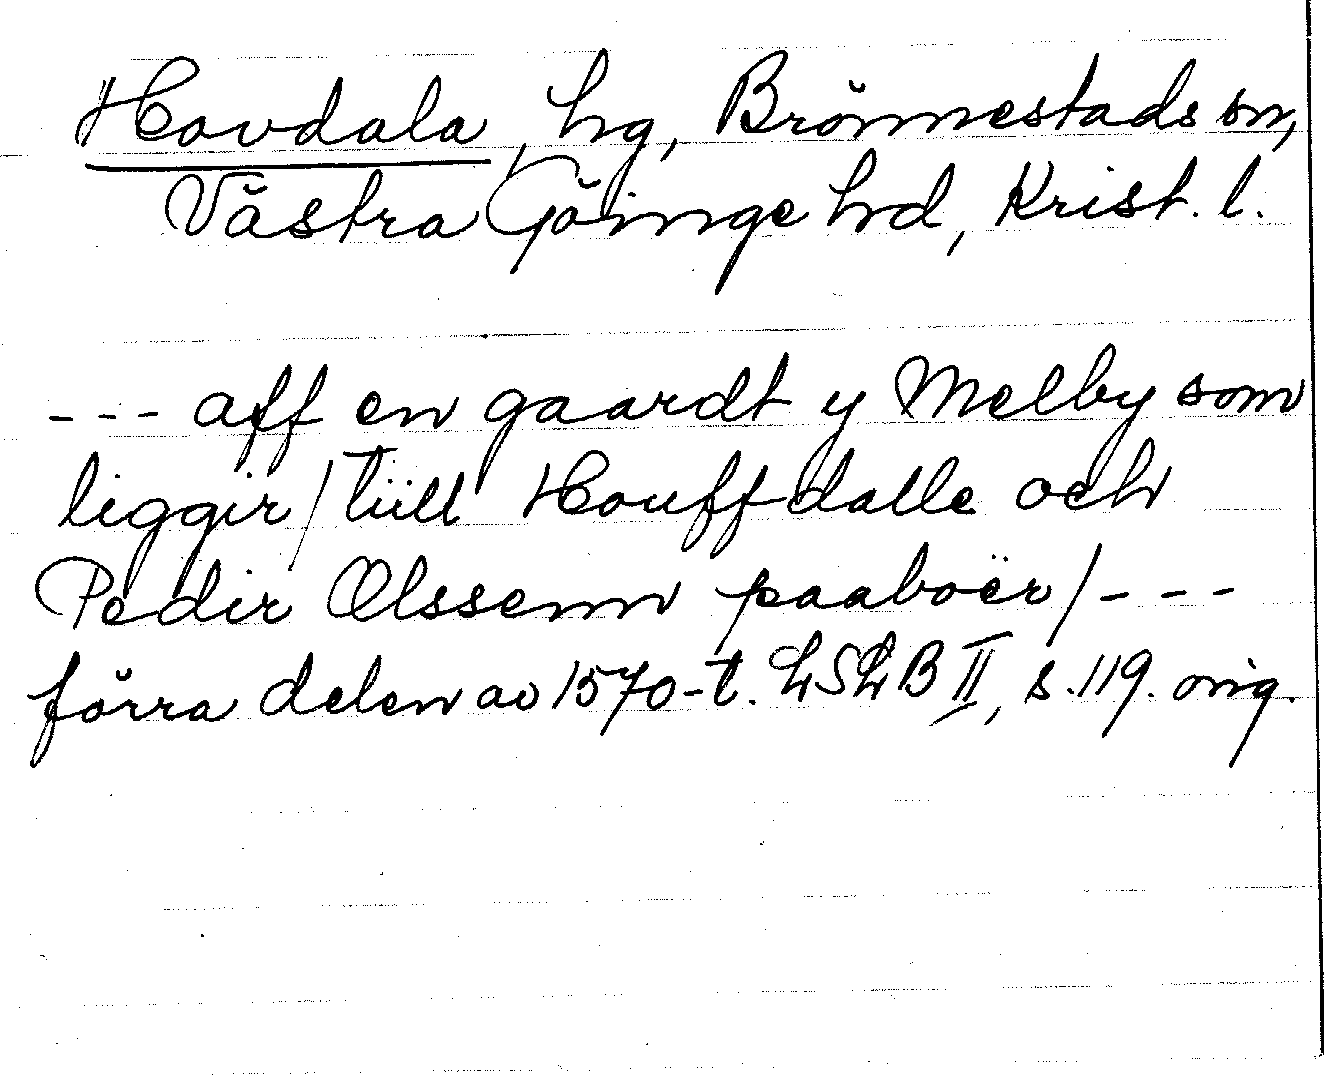 Hovdala, hg, Brönnestads sn,
Västra Göinge hd, Krist. l.
--- aff en gaardt y Melby som
liggir / tiill Houffdalle och
Pedir Olssenn paaboër / ---
förra delen av 1570-t. LSLB II, s. 119. orig.